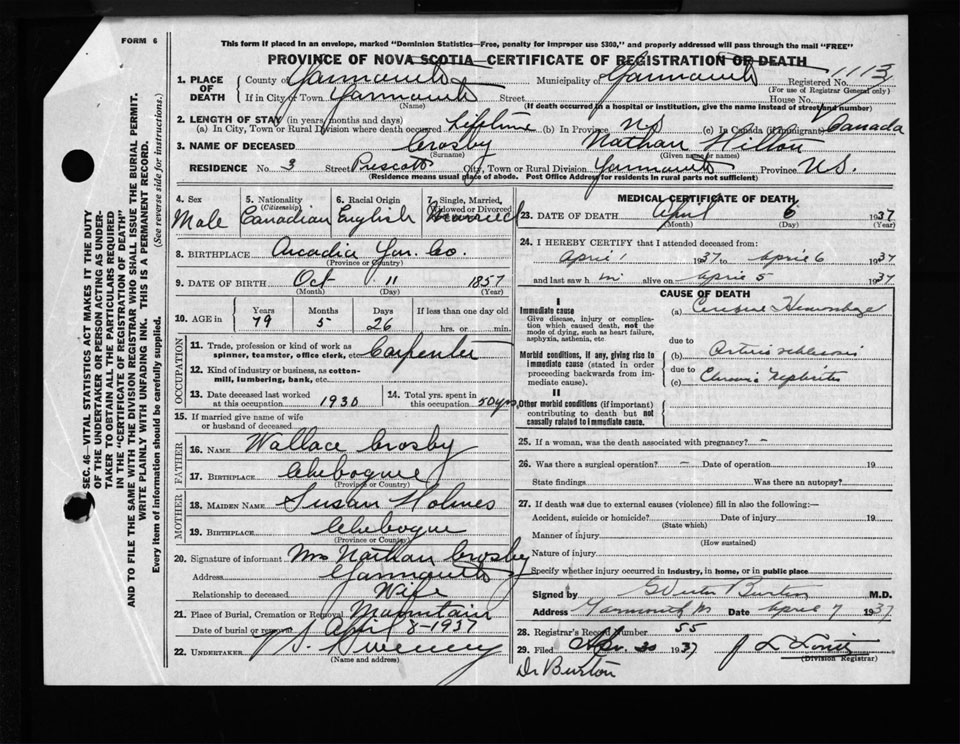 FORM 6
This form if placed in an envelope, marked "Dominion Statistics—Free, penalty for improper use $300," and properly addressed will pass through the mail "FREE"
PROVINCE OF NOVA SCOTIA—CERTIFICATE OF REGISTRATION OF DEATH
1. PLACE OF DEATH County of Yarmouth Municipality of Yarmouth Registered No. 1113
(For use of Registrar General only)
If in City or Town Yarmouth Street House No.
(Name) (If death occurred in a hospital or institution, give the name instead of street and number)
2. LENGTH OF STAY (in years, months and days)
(a) In City, Town or Rural Division where death occurred lifetime (b) In Province NS (c) In Canada (if immigrant) Canada
3. NAME OF DECEASED Crosby Nathan Hilton
(Surname) (Given name or names)
RESIDENCE No. 3 Street Prescott City, Town or Rural Division Yarmouth Province NS.
(Residence means usual place of abode. Post Office Address for residents in rural parts not sufficient)
4. Sex 5. Nationality (Citizenship) 6. Racial Origin 7. Single, Married, Widowed or Divorced
Male Canadian English Married
8. BIRTHPLACE Arcadia Yar. Co.
(Province or Country)
9. DATE OF BIRTH Oct 11 1857
(Month) (Day) (Year)
10. AGE in Years Months Days If less than one day old
79 5 26 hrs. or min.
OCCUPATION
11. Trade, profession or kind of work as spinner, teamster, office clerk, etc. Carpenter
12. Kind of industry or business, as cotton-mill, lumbering, bank, etc.
13. Date deceased last worked at this occupation 1930 14. Total yrs. spent in this occupation 50 yrs
15. If married give name of wife or husband of deceased
FATHER
16. NAME Wallace Crosby
17. BIRTHPLACE Chebogue
(Province or Country)
MOTHER
18. MAIDEN NAME Susan Holmes
19. BIRTHPLACE Chebogue
(Province or Country)
20. Signature of informant Mrs Nathan Crosby
Address Yarmouth
Relationship to deceased Wife
21. Place of Burial, Cremation or Removal Mountain
Date of burial or removal April 8-1937
22. UNDERTAKER Sweeney
(Name and address)
MEDICAL CERTIFICATE OF DEATH
23. DATE OF DEATH April 6 1937
(Month) (Day) (Year)
24. I HEREBY CERTIFY that I attended deceased from:
April 1 1937 to April 6 1937
and last saw him alive on April 5 1937
CAUSE OF DEATH
I
Immediate cause
Give disease, injury or complication which caused death, not the mode of dying, such as heart failure, asphyxia, asthenia, etc.
(a) Hemorrhage
due to
Morbid conditions, if any, giving rise to immediate cause (stated in order proceeding backwards from immediate cause).
(b)
due to
(c) Chronic Nephritis
II
Other morbid conditions (if important) contributing to death but not causally related to immediate cause.
25. If a woman, was the death associated with pregnancy? –
26. Was there a surgical operation? – Date of operation 19
State findings Was there an autopsy?
27. If death was due to external causes (violence) fill in also the following:—
Accident, suicide or homicide? Date of injury 19
(State which)
Manner of injury
(How sustained)
Nature of injury
Specify whether injury occurred in industry, in home, or in public place
Signed by Burton M.D.
Address Yarmouth NS Date April 7 1937
28. Registrar's Record Number 55
29. Filed Apr. 30 1937
(Division Registrar)
Dr Burton
SEC. 46—VITAL STATISTICS ACT MAKES IT THE DUTY OF THE UNDERTAKER OR PERSON ACTING AS UNDERTAKER TO OBTAIN ALL THE PARTICULARS REQUIRED IN THE "CERTIFICATE OF REGISTRATION OF DEATH"
AND TO FILE THE SAME WITH THE DIVISION REGISTRAR WHO SHALL ISSUE THE BURIAL PERMIT.
WRITE PLAINLY WITH UNFADING INK. THIS IS A PERMANENT RECORD.
Every item of information should be carefully supplied. (See reverse side for instructions.)